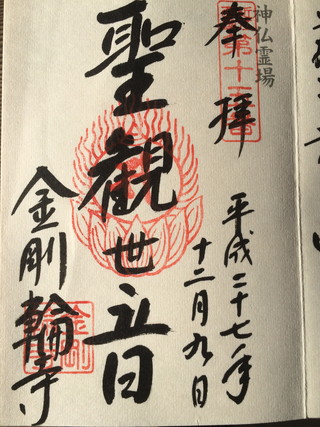 神仏霊場
奉拝
平成二十七年
十二月九日
聖観世音
金剛輪寺